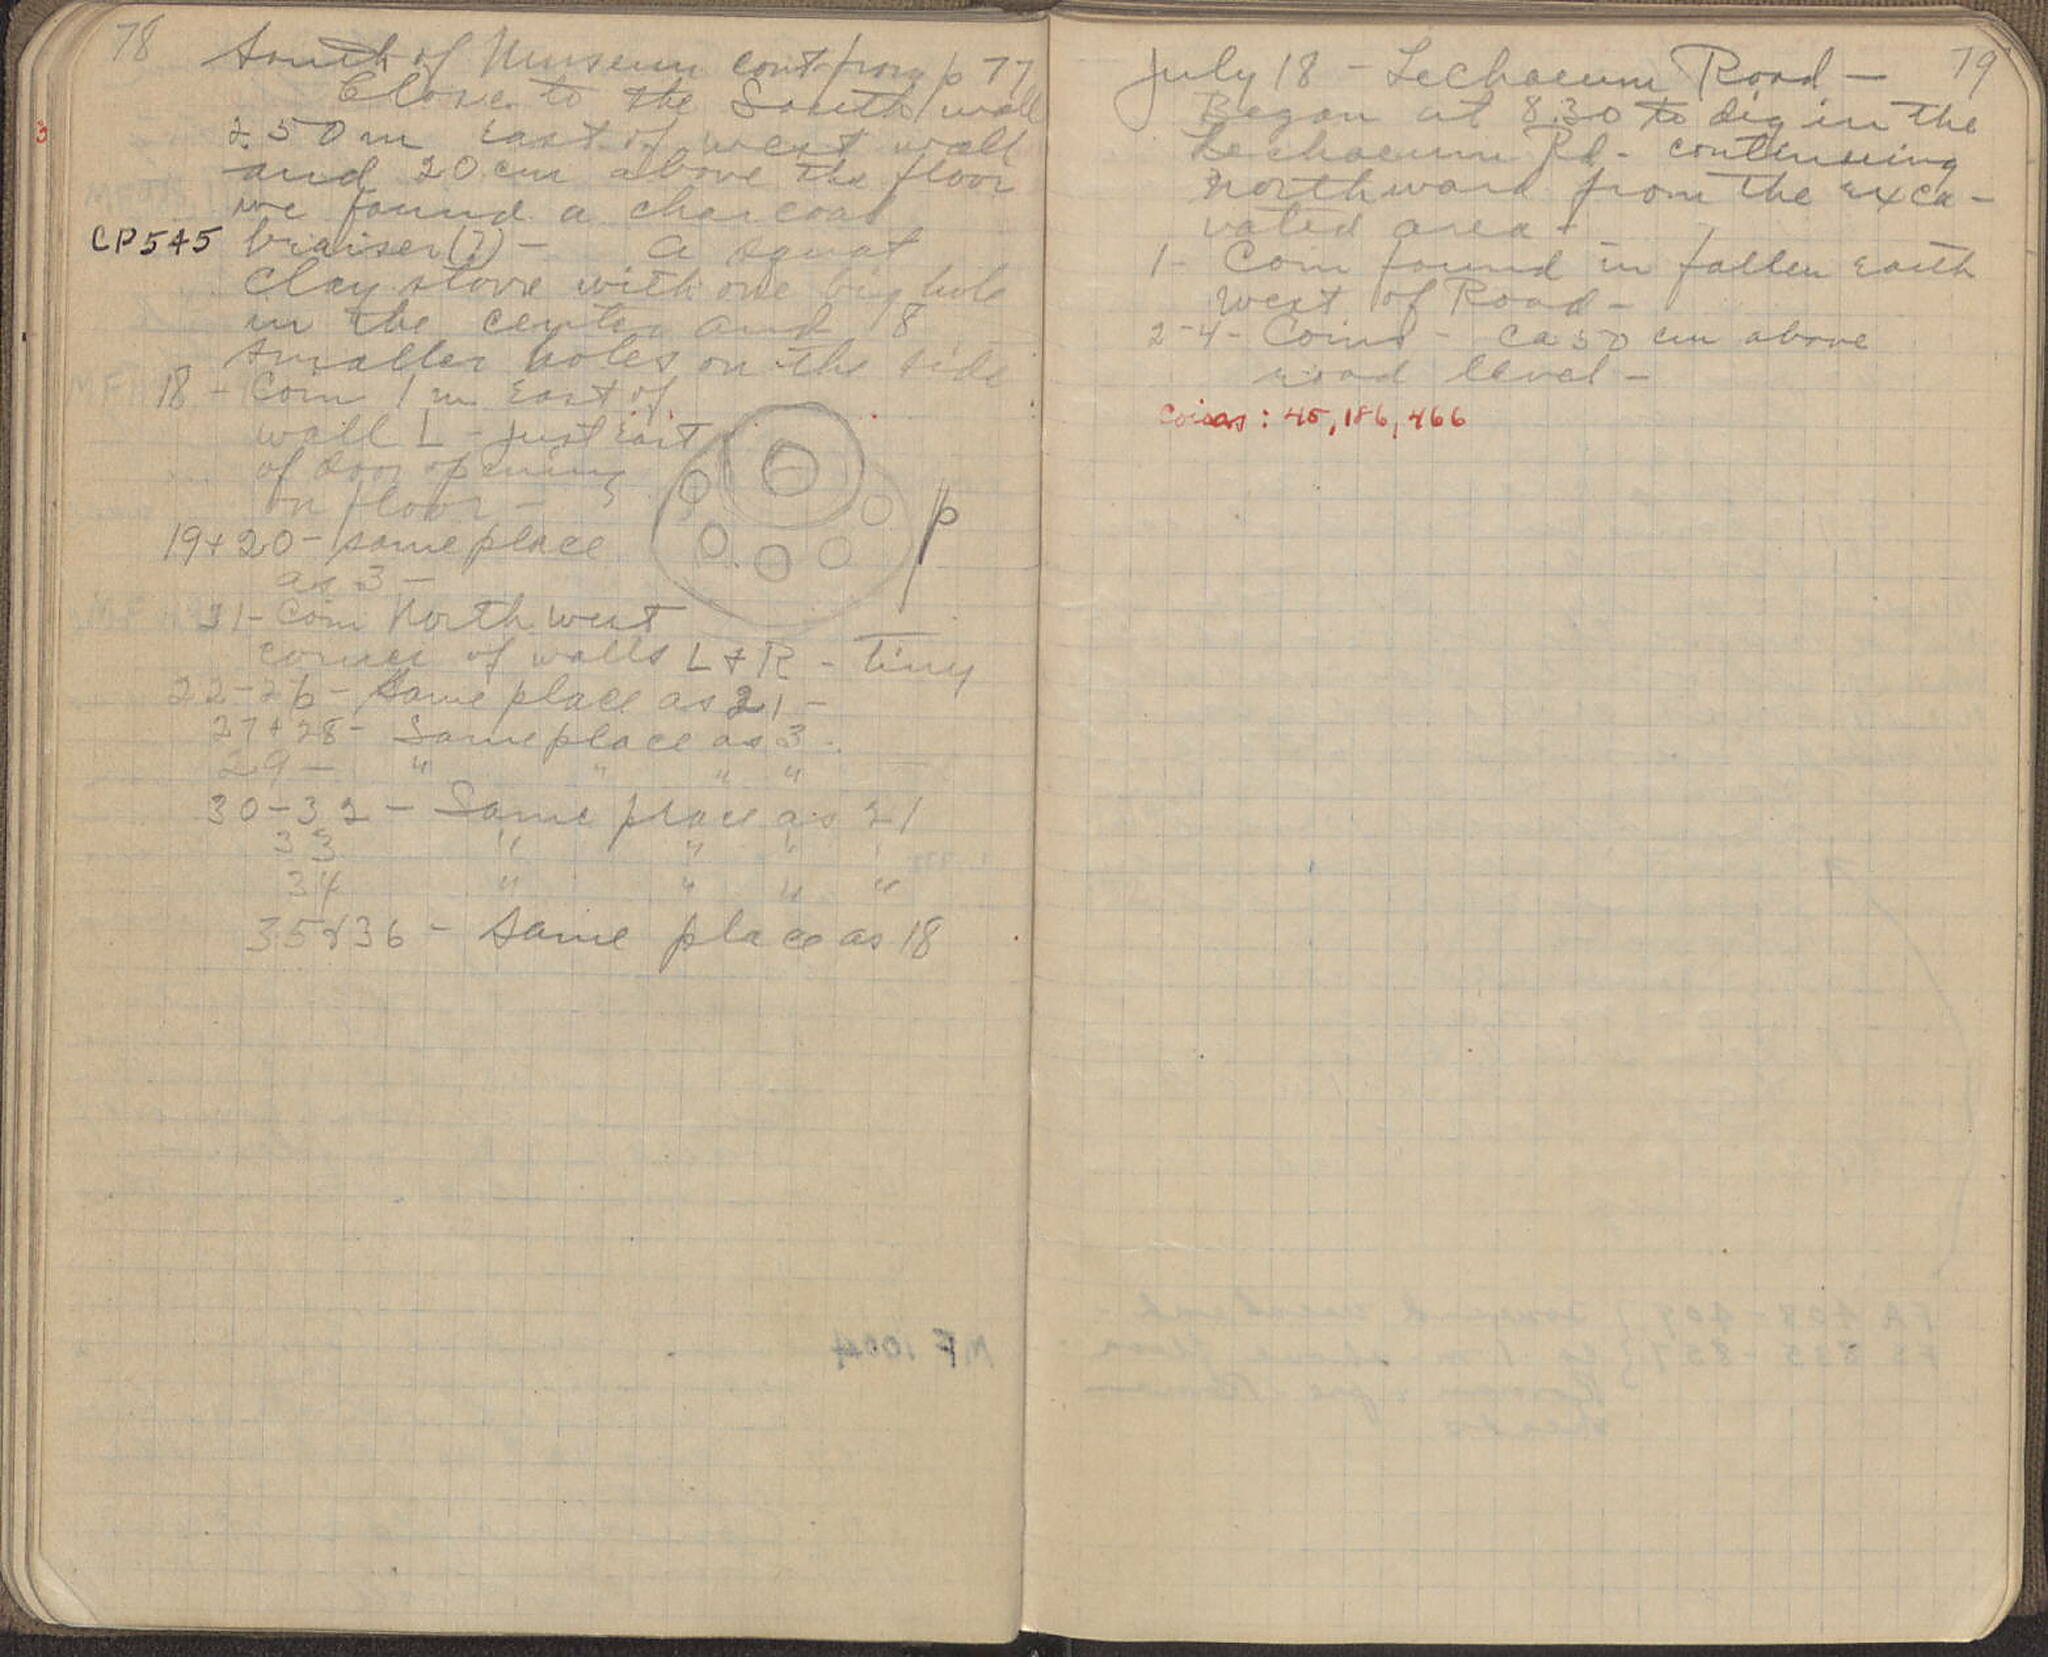 78
South of Museum cont from p 77
Close to the South wall
2.50 m East of west wall
and 20 cm above the floor
we found a charcoal
CP545 braiser(?) - a squat
clay stove with one big hole
in the center and 18
smaller holes on the side
18 - Coin 1 m East of
wall L - just east
of door opening
on floor -
19 + 20 - same place
as 3 -
21 - Coin North west
corner of walls L + R - Tiny
22-26 - Same place as 21 -
27 + 28 - Same place as 3 -
29 - " " " "
30-32 - Same place as 21
33 " " " "
34 " " " "
35 & 36 - Same place as 18
p
3
79
July 18 - Lechaeum Road -
Began at 8.30 to dig in the
Lechaeum Rd - continuing
northward from the exca-
vated area -
1 - Coin found in fallen earth
west of Road -
2-4 - Coins - ca 50 cm above
road level -
Coins : 45, 186, 466